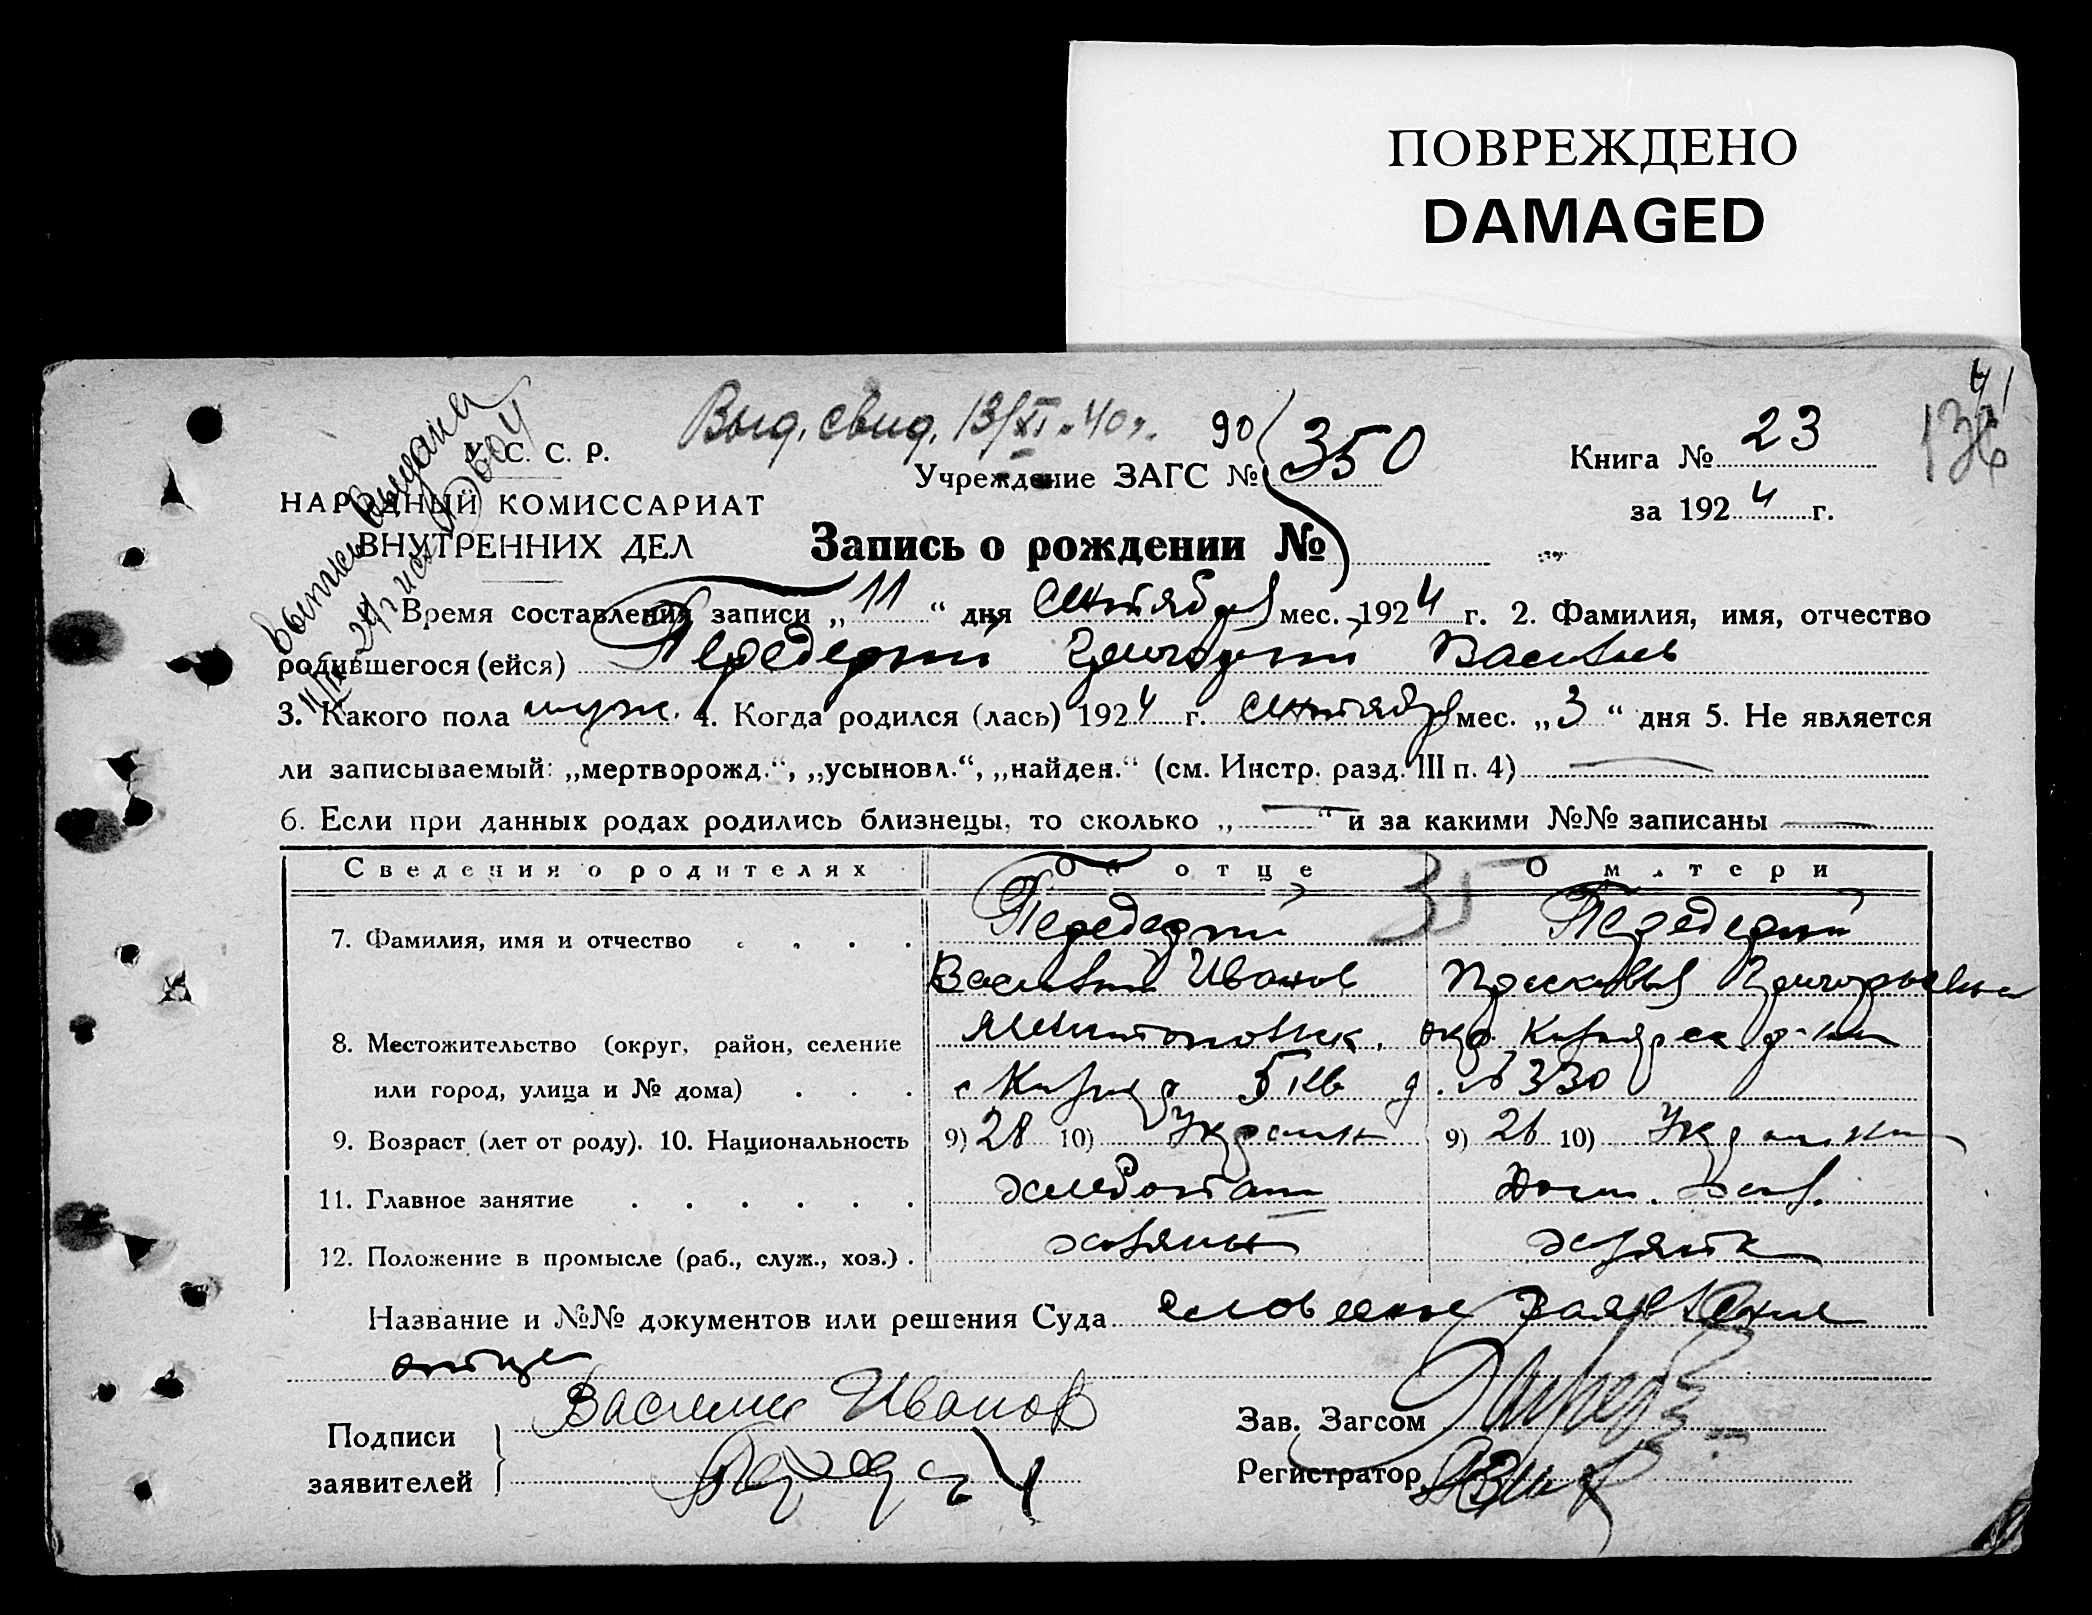 ПОВРЕЖДЕНО
DAMAGED
Выд. свид. 13/XI. 40 г.
Выпись выдана
У. С. С. Р.
НАРОДНЫЙ КОМИССАРИАТ
ВНУТРЕННИХ ДЕЛ
90
Учреждение ЗАГС № 350
Книга № 23
за 1924 г.
136
Запись о рождении №
Время составления записи „11“ дня Сентября мес. 1924 г. 2. Фамилия, имя, отчество
родившегося (ейся) Передерий Григорий Васильев
3. Какого пола муж. 4. Когда родился (лась) 1924 г. Сентября мес. „3“ дня 5. Не является
ли записываемый: „мертворожд.“, „усыновл.“, „найден.“ (см. Инстр. разд. III п. 4) —
6. Если при данных родах родились близнецы, то сколько „—“ и за какими №№ записаны —
Сведения о родителях Об отце О матери
35
7. Фамилия, имя и отчество Передерий Передерий
Василий Иванов Прасковья Григорьевна
8. Местожительство (округ, район, селение Мелитопольск. окр.
или город, улица и № дома) 5 кв д. № 330
9. Возраст (лет от роду). 10. Национальность 9) 28 10) Украин 9) 26 10) Украинка
11. Главное занятие хлебопаш Дом. хоз.
12. Положение в промысле (раб., служ., хоз.) хозяин хозяйка
Название и №№ документов или решения Суда словесное заявление
отца
Подписи
заявителей
Василий Иванов
Зав. Загсом
Регистратор